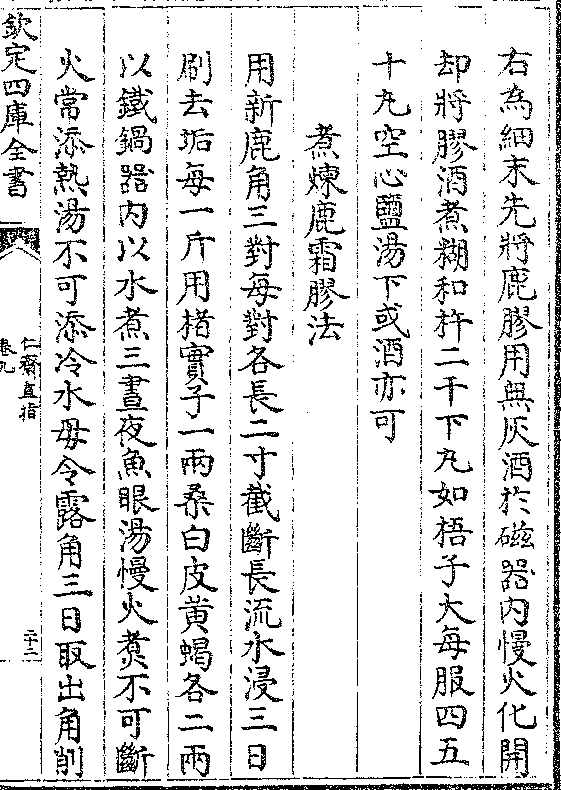 右為細末先將鹿膠用無灰酒於磁器内慢火化開
却將膠酒煮糊和杵二千下丸如梧子大每服四五
十丸空心鹽湯下或酒亦可
煮煉鹿霜膠法
用新鹿角三對每對各長二寸截斷長流水浸三日
刷去垢每一斤用楮實子一兩桑白皮黄蝎各二兩
以鐵鍋器内以水煮三晝夜魚眼湯慢火煑不可斷
火常添熱湯不可添冷水毋令露角三日取出角削
欽定四庫全書
仁齋直指
卷九
二十二